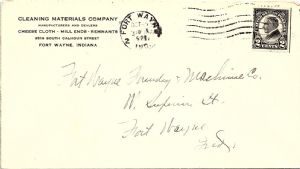 CLEANING MATERIALS COMPANY
MANUFACTURERS AND DEALERS
CHEESE CLOTH - MILL ENDS - REMNANTS
SOUTH CALHOUN STREET
FORT WAYNE, INDIANA
FORT WAYNE
2 CENTS 2
Fort Wayne Foundry & Machine Co.
W. Superior St.
Fort Wayne
Ind.